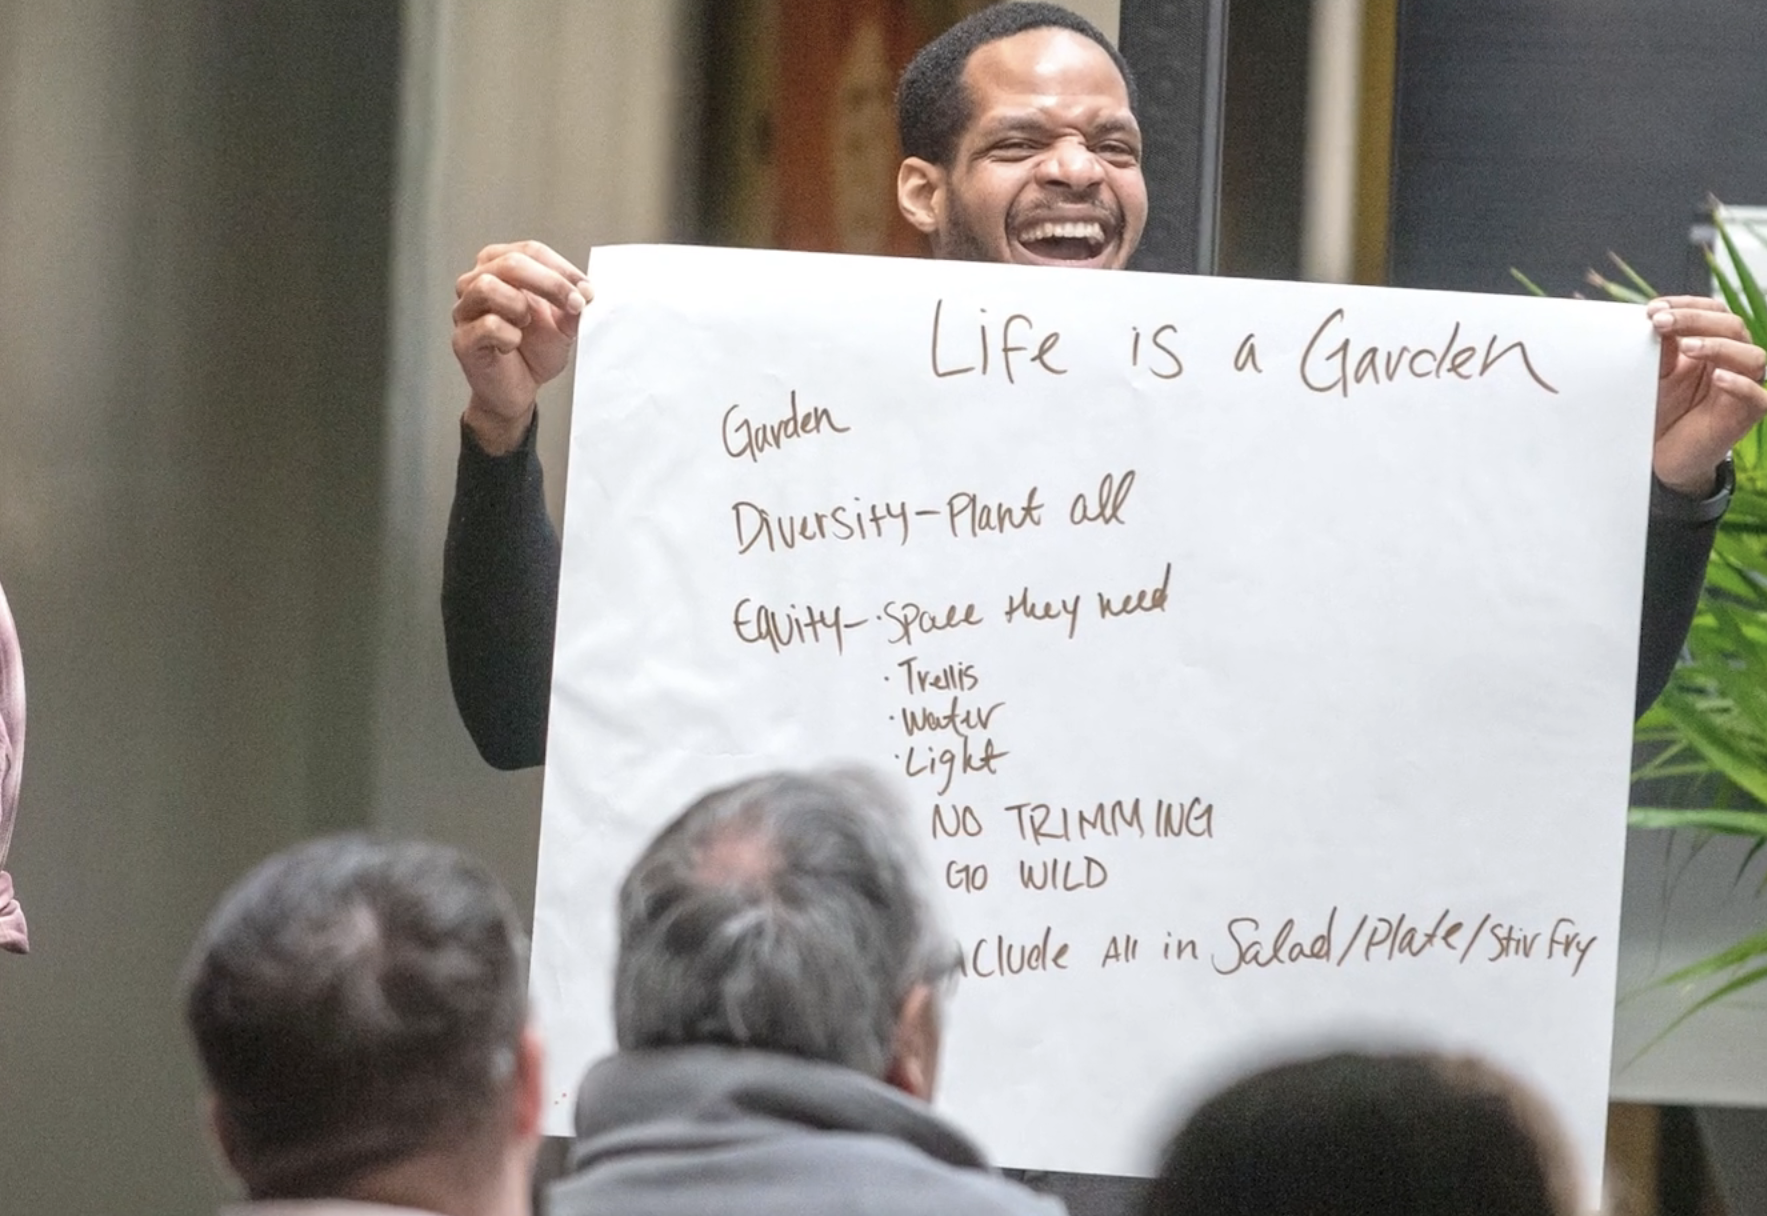 Life is a Garden
Garden
Diversity-Plant all
Equity-·Space they need
·Trellis
·Water
·Light
NO TRIMMING
GO WILD
nclude All in Salad/Plate/Stir Fry